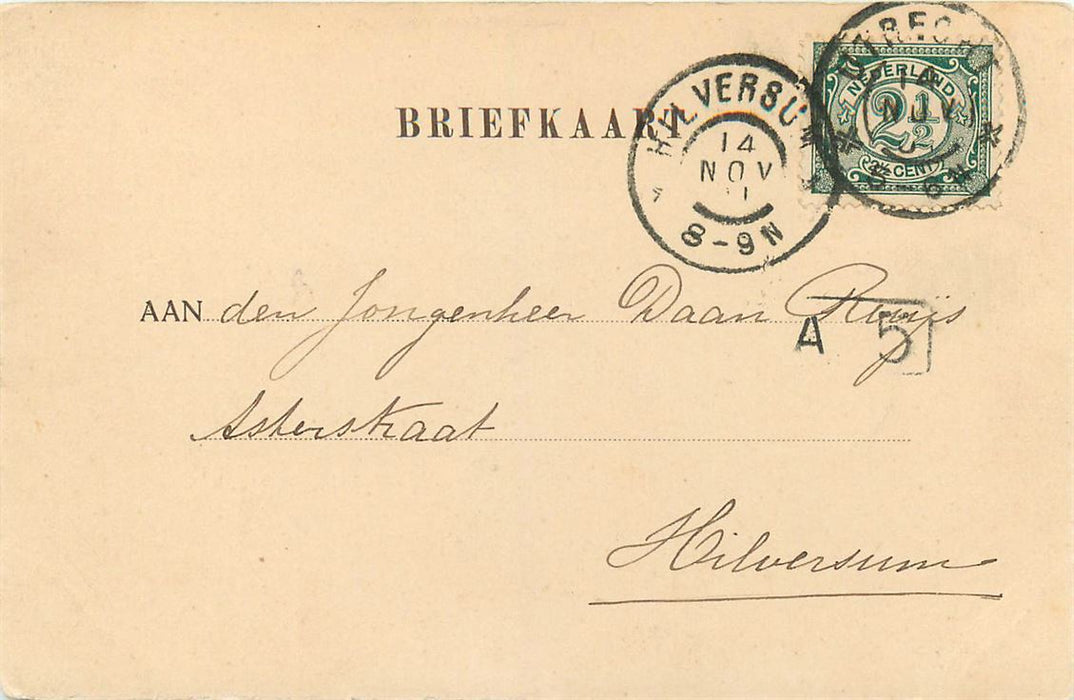 BRIEFKAART
HILVERSUM
14
NOV
1
8-9N
UTRECHT
14
NOV
5-6N
NEDERLAND
2½
2½ CENT
AAN den Jongenheer Daan Rooijs
A 5
Asterstraat
Hilversum